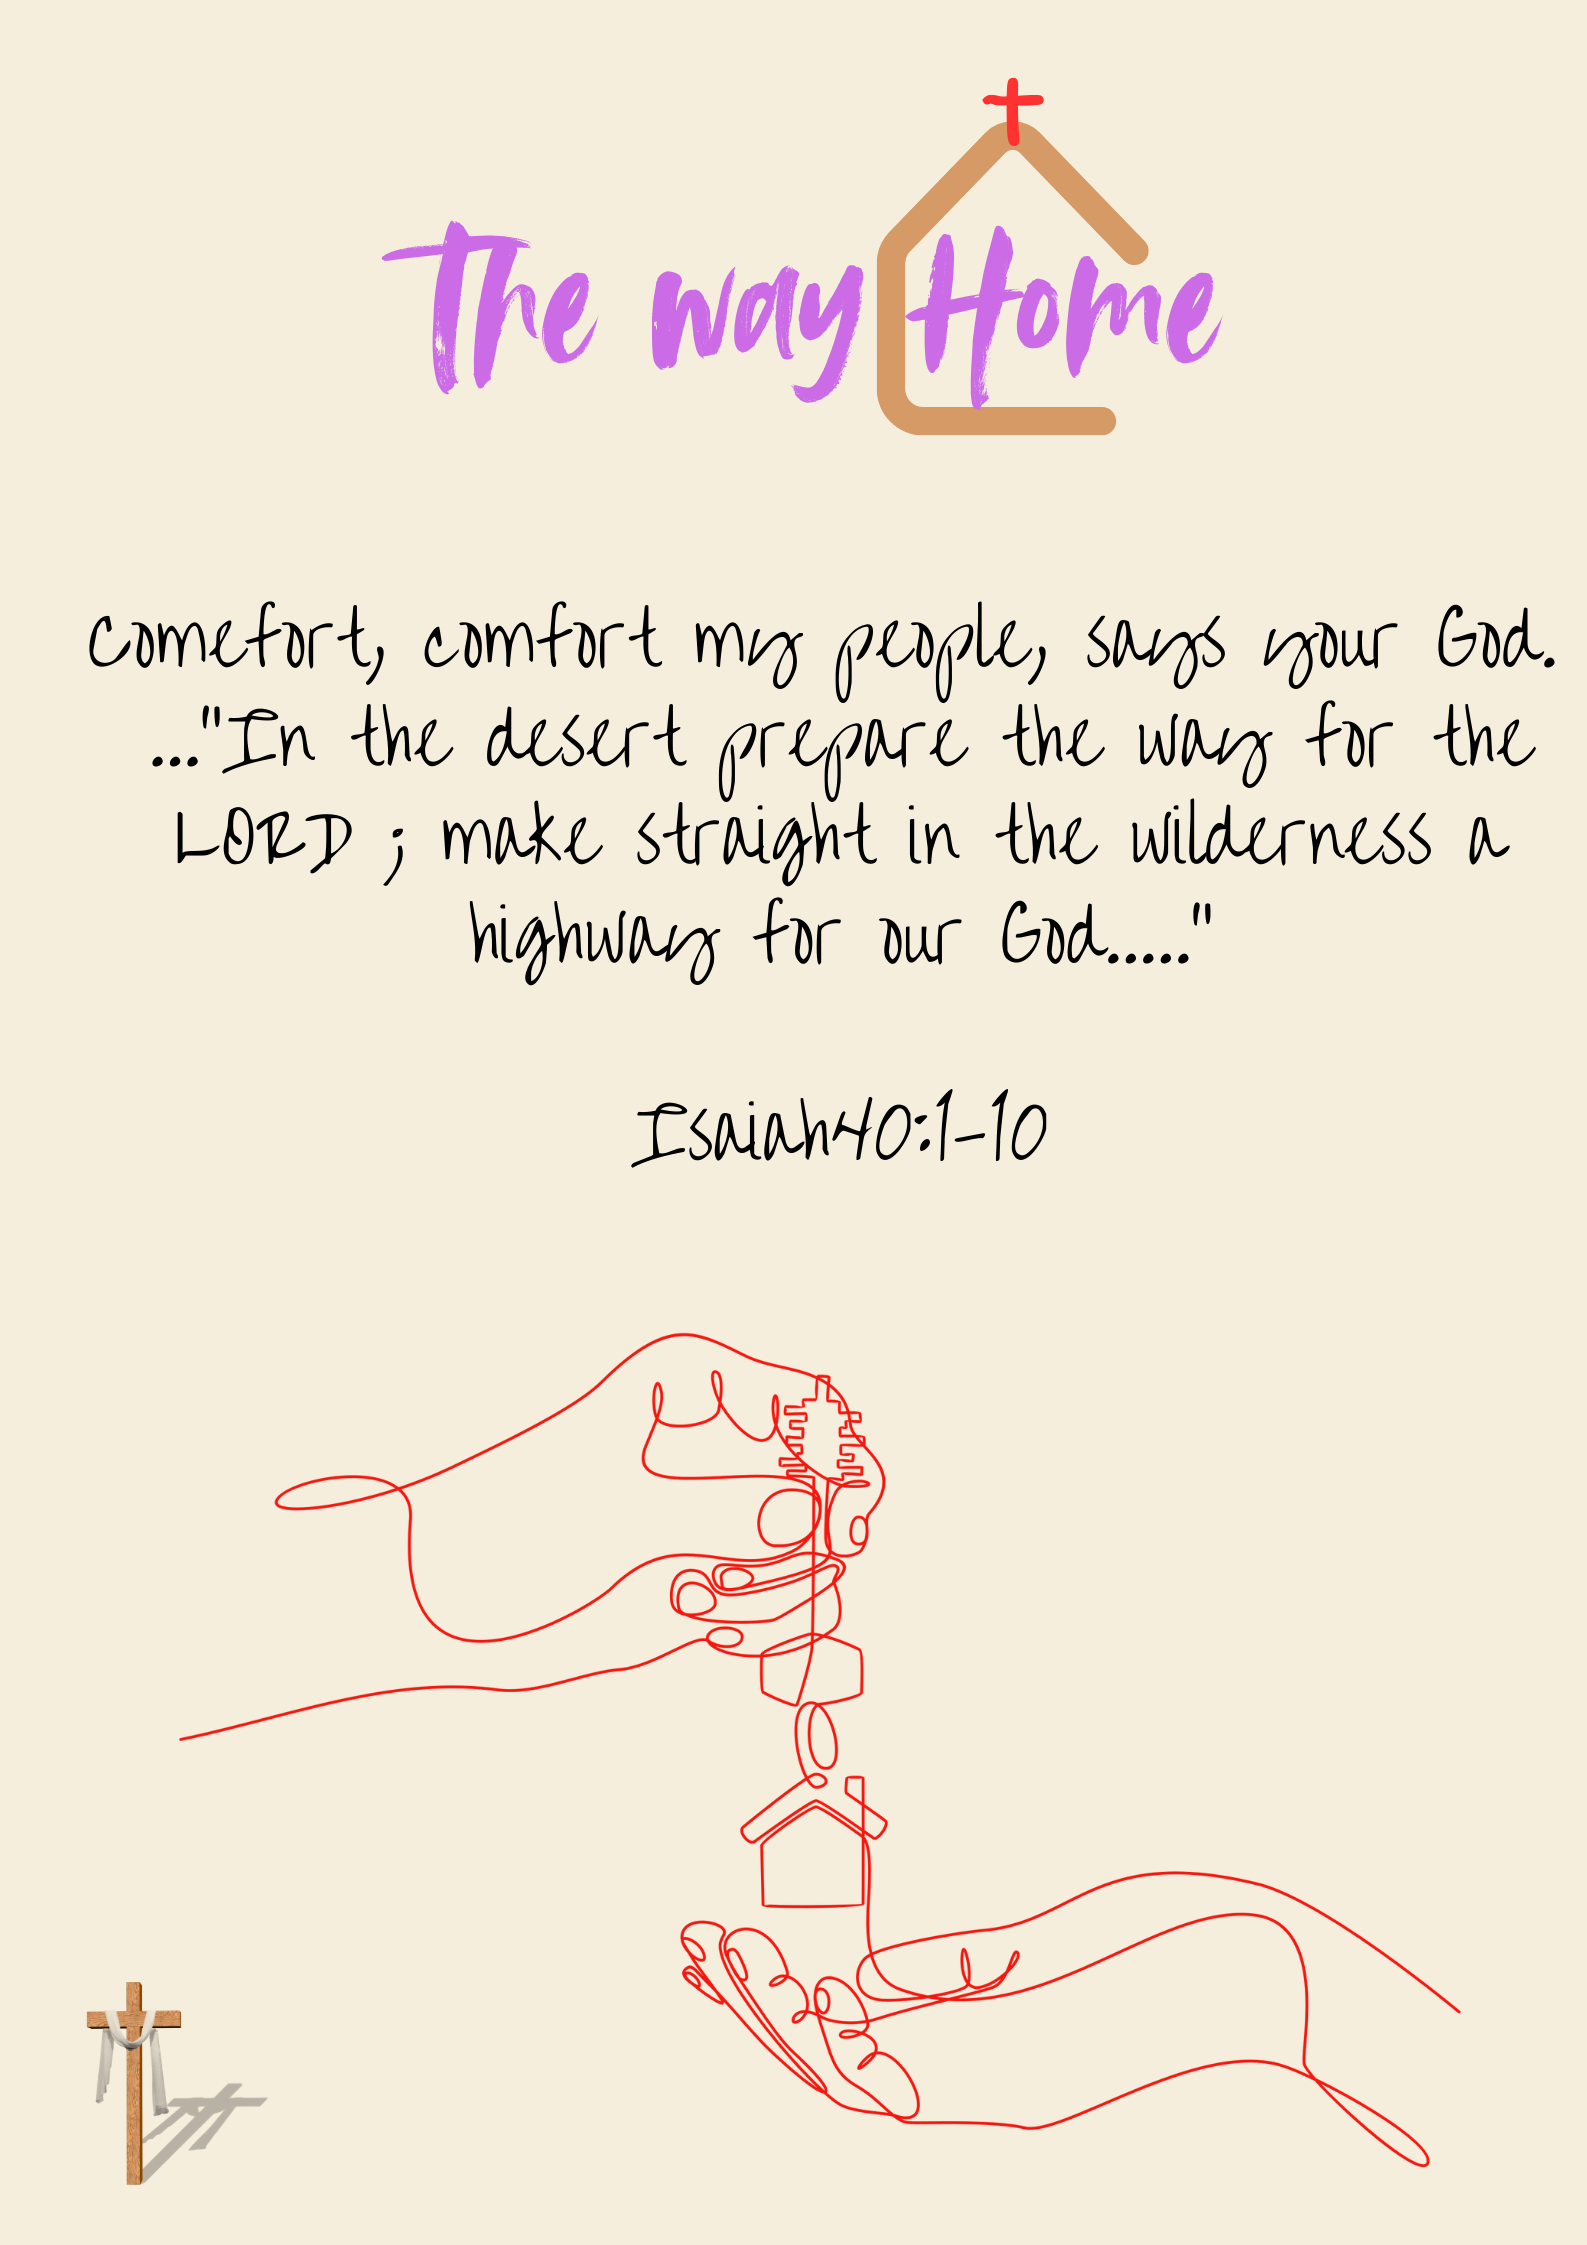 The way Home
Comefort, comfort my people, says your God.
..."In the desert prepare the way for the
LORD ; make straight in the wilderness a
highway for our God....."
Isaiah40:1-10